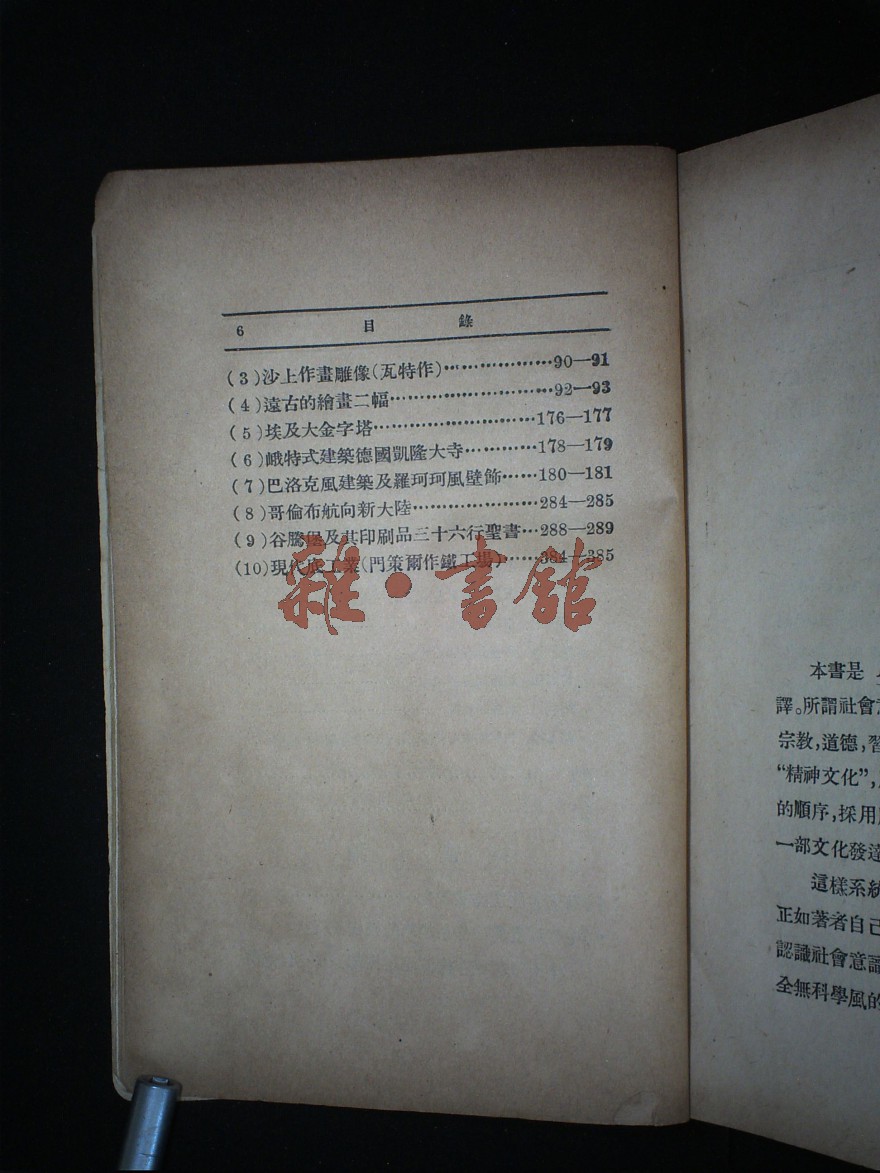 6 目 錄
(3)沙上作畫雕像(瓦特作)………………90—91
(4)遠古的繪畫二幅………………………92—93
(5)埃及大金字塔………………………176—177
(6)峨特式建築德國凱隆大寺…………178—179
(7)巴洛克風建築及羅珂珂風壁飾……180—181
(8)哥倫布航向新大陸…………………284—285
(9)谷騰堡及其印刷品三十六行聖書…288—289
(10)現代底工業(門策爾作鐵工場)……384—385
雜·書館
本書是
譯。所謂社會意
宗教,道德,習
“精神文化”,
的順序,採用
一部文化發達
這樣系統
正如著者自己
認識社會意識
全無科學風的